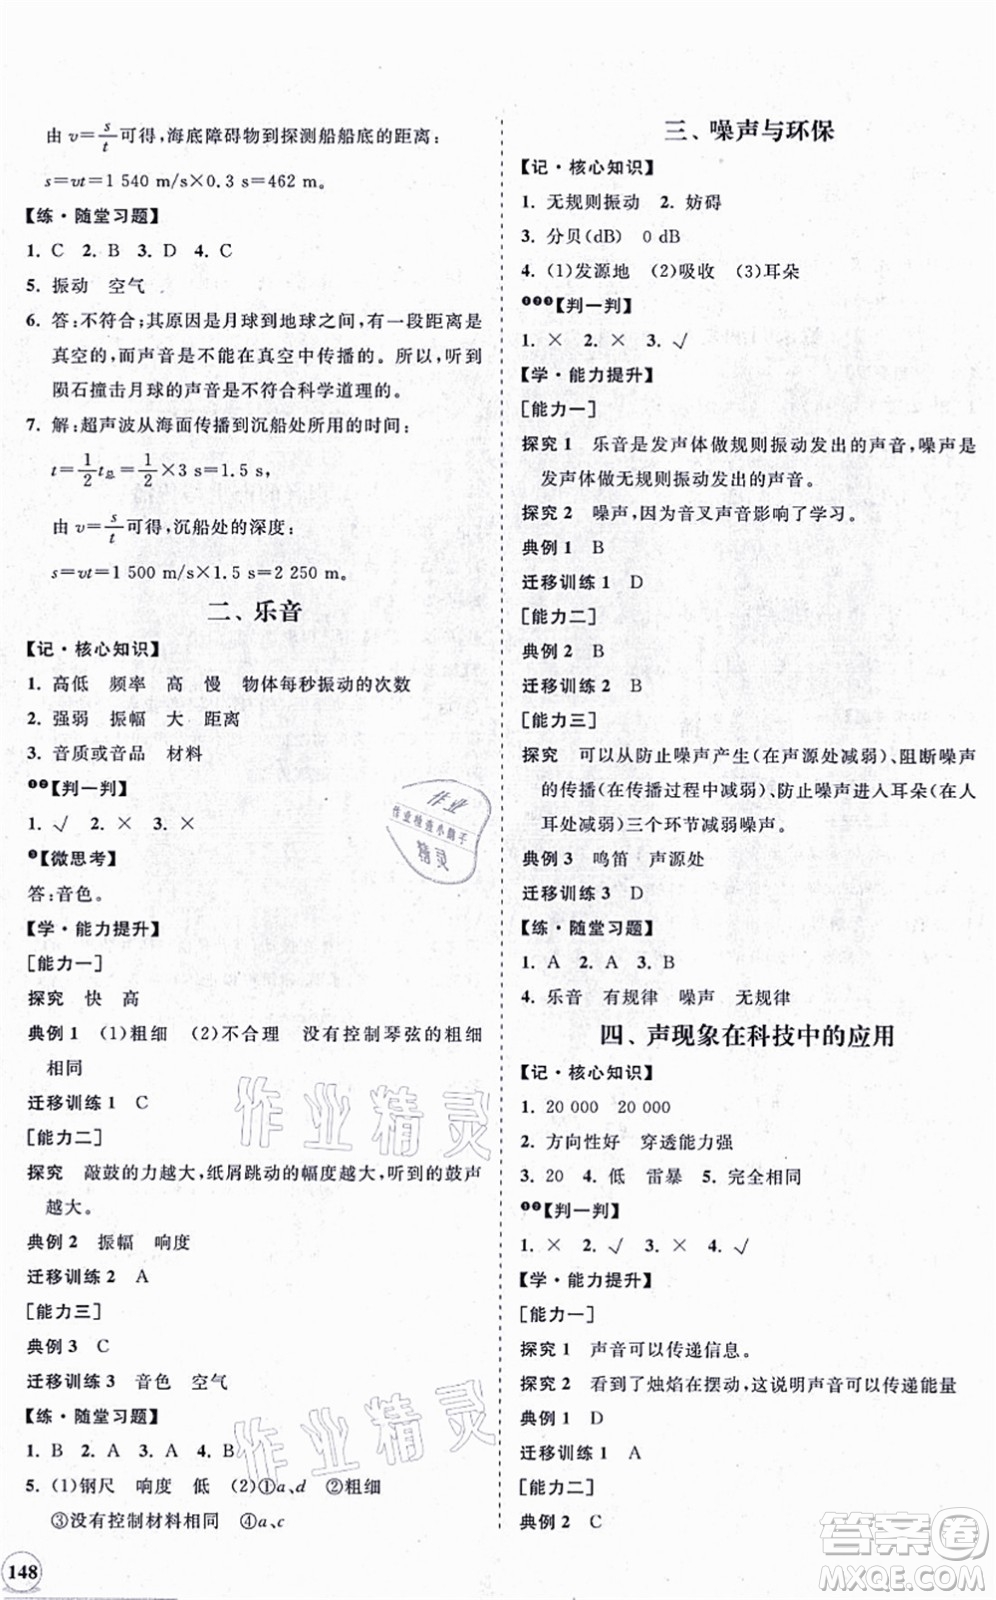 由 v=s/t 可得,海底障碍物到探测船船底的距离:
s=vt=1 540 m/s×0.3 s=462 m。
【练·随堂习题】
1. C 2. B 3. D 4. C
5. 振动 空气
6. 答:不符合;其原因是月球到地球之间,有一段距离是
真空的,而声音是不能在真空中传播的。所以,听到
陨石撞击月球的声音是不符合科学道理的。
7. 解:超声波从海面传播到沉船处所用的时间:
t=1/2 t总=1/2×3 s=1.5 s,
由 v=s/t 可得,沉船处的深度:
s=vt=1 500 m/s×1.5 s=2 250 m。
二、乐音
【记·核心知识】
1. 高低 频率 高 慢 物体每秒振动的次数
2. 强弱 振幅 大 距离
3. 音质或音品 材料
❶❷【判一判】
1. √ 2. × 3. ×
❸【微思考】
答:音色。
【学·能力提升】
[能力一]
探究 快 高
典例 1 (1)粗细 (2)不合理 没有控制琴弦的粗细
相同
迁移训练 1 C
[能力二]
探究 敲鼓的力越大,纸屑跳动的幅度越大,听到的鼓声
越大。
典例 2 振幅 响度
迁移训练 2 A
[能力三]
典例 3 C
迁移训练 3 音色 空气
【练·随堂习题】
1. B 2. A 3. A 4. B
5. (1)钢尺 响度 低 (2)①a、d ②粗细
③没有控制材料相同 ④a、c
148
三、噪声与环保
【记·核心知识】
1. 无规则振动 2. 妨碍
3. 分贝(dB) 0 dB
4. (1)发源地 (2)吸收 (3)耳朵
❶❷❸【判一判】
1. × 2. × 3. √
【学·能力提升】
[能力一]
探究 1 乐音是发声体做规则振动发出的声音,噪声是
发声体做无规则振动发出的声音。
探究 2 噪声,因为音叉声音影响了学习。
典例 1 B
迁移训练 1 D
[能力二]
典例 2 B
迁移训练 2 B
[能力三]
探究 可以从防止噪声产生(在声源处减弱)、阻断噪声
的传播(在传播过程中减弱)、防止噪声进入耳朵(在人
耳处减弱)三个环节减弱噪声。
典例 3 鸣笛 声源处
迁移训练 3 D
【练·随堂习题】
1. A 2. A 3. B
4. 乐音 有规律 噪声 无规律
四、声现象在科技中的应用
【记·核心知识】
1. 20 000 20 000
2. 方向性好 穿透能力强
3. 20 4. 低 雷暴 5. 完全相同
❶❷【判一判】
1. × 2. √ 3. × 4. √
【学·能力提升】
[能力一]
探究 1 声音可以传递信息。
探究 2 看到了烛焰在摆动,这说明声音可以传递能量
典例 1 D
迁移训练 1 A
[能力二]
典例 2 C
作业
作业检查小助手
精灵
作业精灵
作业精灵
答案圈
MXQE.COM